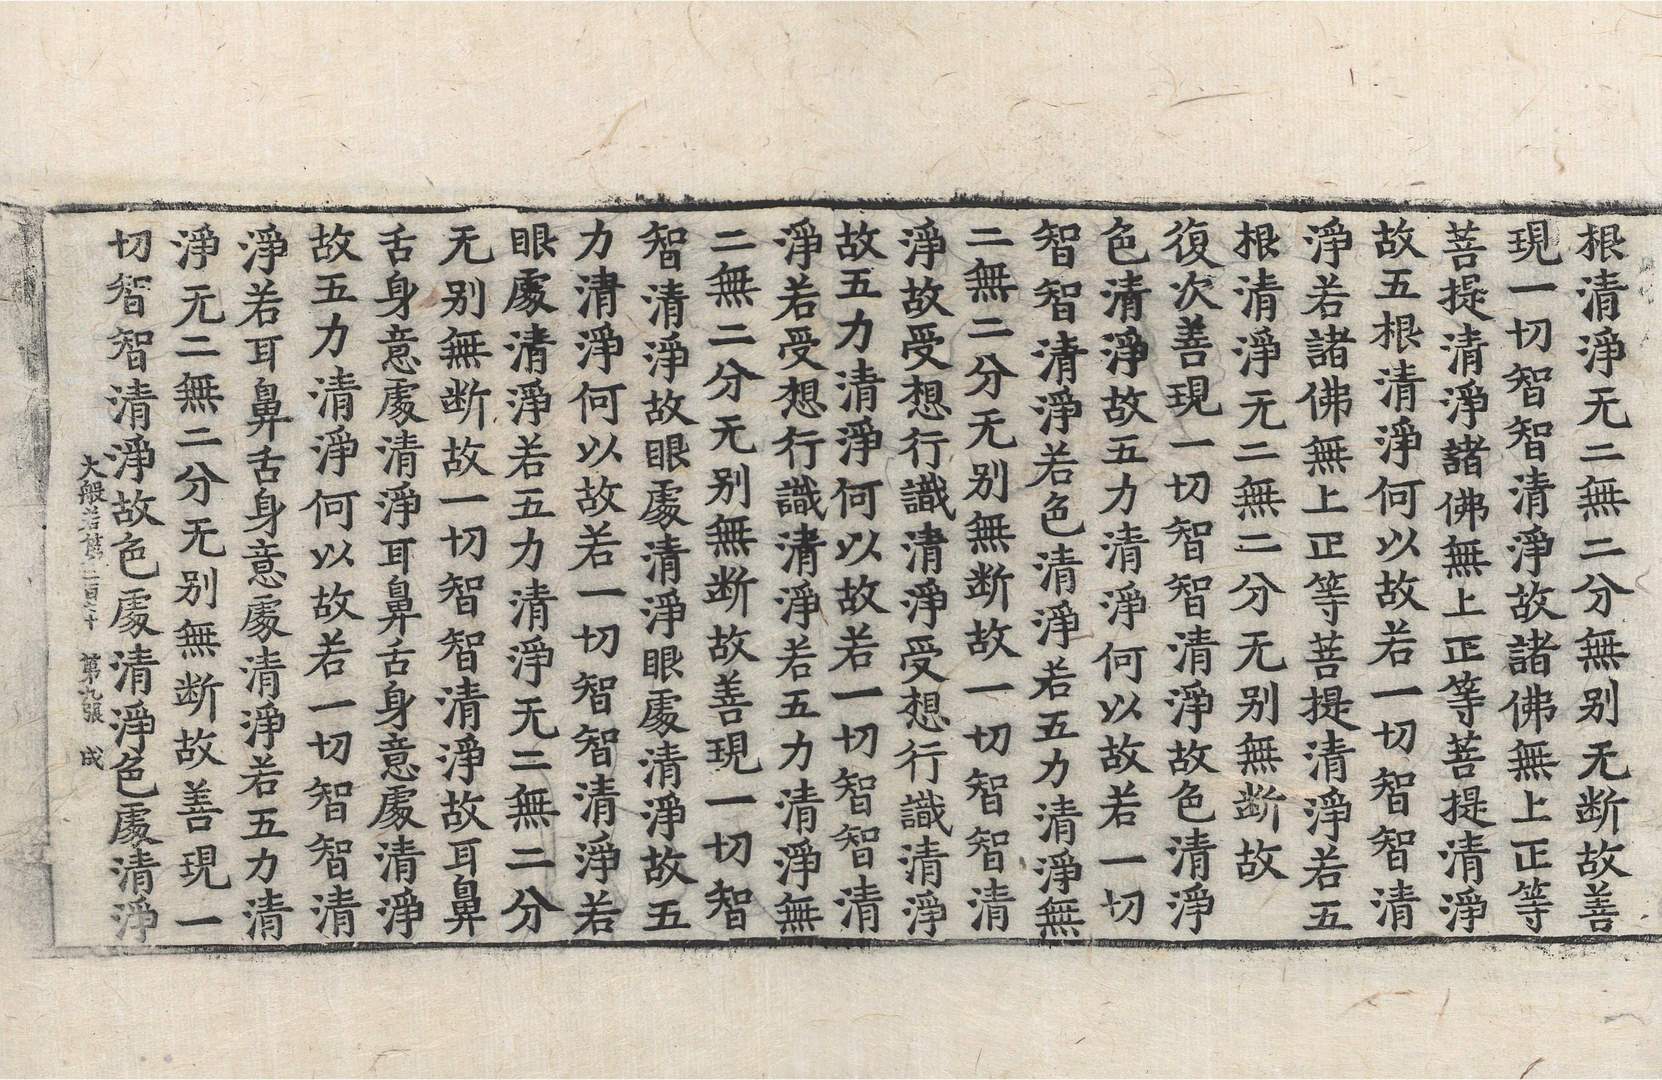 根清淨无二無二分無別无斷故善
現一切智智清淨故諸佛無上正等
菩提清淨諸佛無上正等菩提清淨
故五根清淨何以故若一切智智清
淨若諸佛無上正等菩提清淨若五
根清淨无二無二分无別無斷故
復次善現一切智智清淨故色清淨
色清淨故五力清淨何以故若一切
智智清淨若色清淨若五力清淨無
二無二分无別無斷故一切智智清
淨故受想行識清淨受想行識清淨
故五力清淨何以故若一切智智清
淨若受想行識清淨若五力清淨無
二無二分无別無斷故善現一切智
智清淨故眼處清淨眼處清淨故五
力清淨何以故若一切智智清淨若
眼處清淨若五力清淨无二無二分
无別無斷故一切智智清淨故耳鼻
舌身意處清淨耳鼻舌身意處清淨
故五力清淨何以故若一切智智清
淨若耳鼻舌身意處清淨若五力清
淨无二無二分无別無斷故善現一
切智智清淨故色處清淨色處清淨
大般若第二百六十 第九張 成